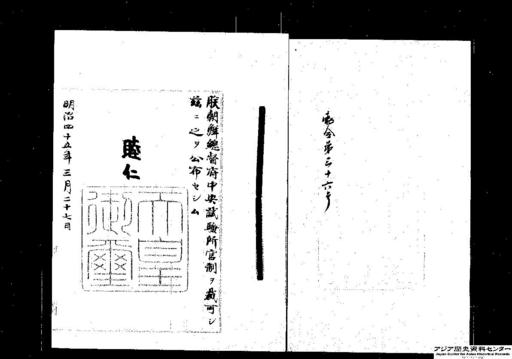 勅令第三十六号
朕朝鮮總督府中央試驗所官制ヲ裁可シ
茲ニ之ヲ公布セシム
睦仁
天皇
御璽
明治四十五年三月二十七日
アジア歴史資料センター
Japan Center for Asian Historical Records